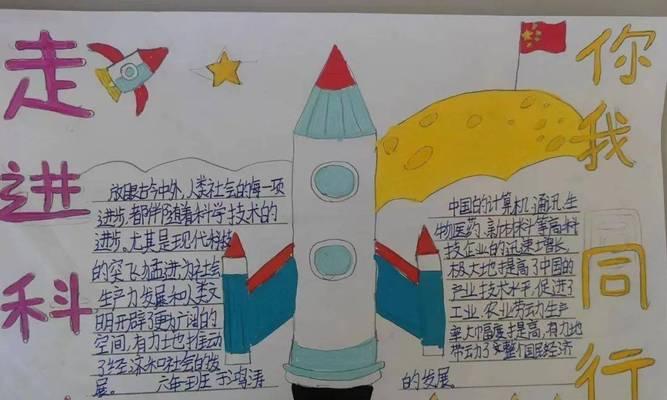 走进科
放眼古今中外,人类社会的每一项
进步,都伴随着科学技术的
进步。尤其是现代科技
的突飞猛进,为社会
生产力发展和人类文
明开辟了更为广阔的
空间,有力地推动
了经济和社会的发
展。 六年 班
中国的计算机、通讯、生
物医药、新材料等高科
技企业的迅速增长,
极大地提高了中国的
产业技术水平,促进了
工业、农业劳动生产
率大幅度提高,有力地
带动了整个国民经济
的发展。
你我同行